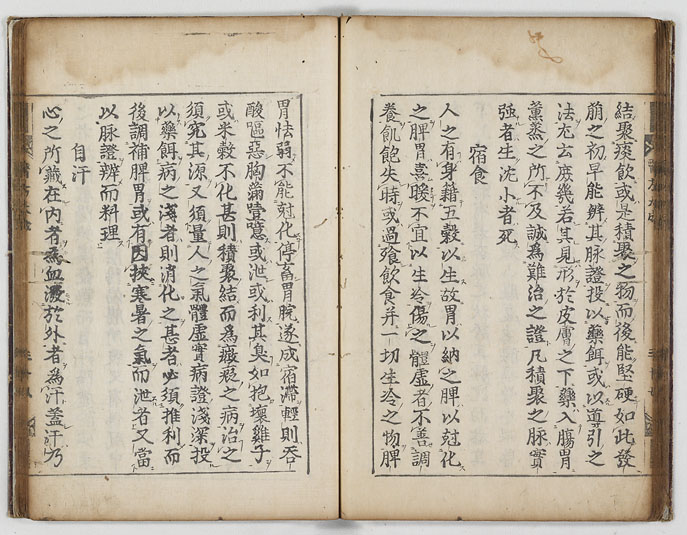 結聚痰飲或是積聚之物而後能堅硬如此發
萠之初早能辨其脉證投以藥餌或以導引之
法充去庶幾若其見形於皮膚之下藥入膓胃
薰蒸之所不及誠為難治之證凡積聚之脉實
強者生沈小者死
宿食
人之有身藉五穀以生故胃以納之脾以尅化
之脾胃熹暖不宜以生冷傷之體虛者不善調
養飢飽失時或過飱飲食并一切生冷之物脾
胃怯弱不能尅化停畜胃脘遂成宿滯輕則吞
酸嘔惡胸滿噎噫或泄或利其臭如抱壞雞子
或米穀不化甚則積聚結而為癥瘕之病治之
須究其源又須量人之氣體虛實病證淺深投
以藥餌病之淺者則消化之甚者必須推利而
後調補脾胃或有因挾寒暑之氣而泄者又當
以脉證辨而料理
自汗
心之所藏在內者為血發於外者為汗蓋汗乃